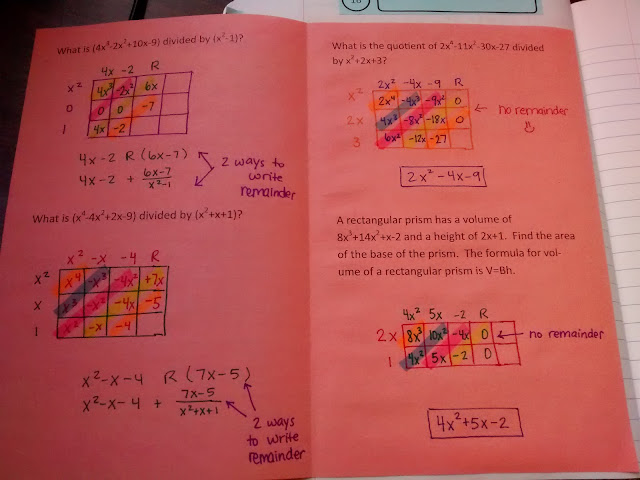 What is (4x³-2x²+10x-9) divided by (x²-1)?
4x -2 R
x² 4x³ -2x² 6x
0 0 0 -7
1 4x -2
4x-2 R (6x-7)
4x-2 + 6x-7
x²-1
2 ways to
write
remainder
What is (x⁴-4x²+2x-9) divided by (x²+x+1)?
x² -x -4 R
x² x⁴ -x³ -4x² +7x
x x³ -x² -4x -5
1 x² -x -4
x²-x-4 R (7x-5)
x²-x-4 + 7x-5
x²+x+1
2 ways
to write
remainder
What is the quotient of 2x⁴-11x²-30x-27 divided
by x²+2x+3?
2x² -4x -9 R
x² 2x⁴ -4x³ -9x² 0
2x 4x³ -8x² -18x 0
3 6x² -12x -27
no remainder
2x²-4x-9
A rectangular prism has a volume of
8x³+14x²+x-2 and a height of 2x+1. Find the area
of the base of the prism. The formula for vol-
ume of a rectangular prism is V=Bh.
4x² 5x -2 R
2x 8x³ 10x² -4x 0
1 4x² 5x -2 0
no remainder
4x²+5x-2